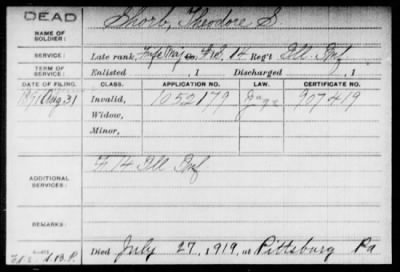 DEAD
NAME OF SOLDIER:
Shorb, Theodore S.
SERVICE:
Late rank, Maj Co. 14 Reg't Ill Inf
TERM OF SERVICE:
Enlisted , 1 Discharged , 1
DATE OF FILING. CLASS. APPLICATION NO. LAW. CERTIFICATE NO.
1891 Aug. 31 Invalid, 1052179 907419
Widow,
Minor,
ADDITIONAL SERVICES:
F 14 Ill Inf
REMARKS:
Died July 27, 1919, at Pittsburg Pa